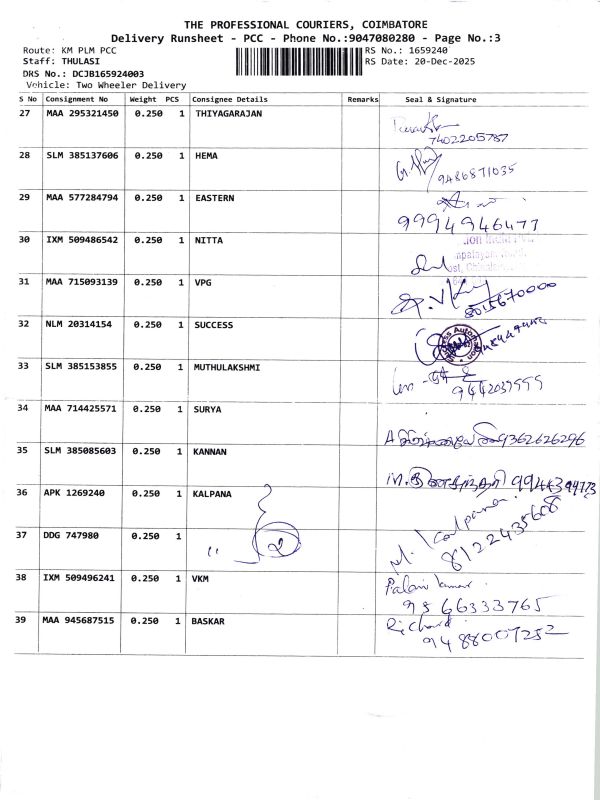 THE PROFESSIONAL COURIERS, COIMBATORE
Delivery Runsheet - PCC - Phone No.:9047080280 - Page No.:3
Route: KM PLM PCC
RS No.: 1659240
Staff: THULASI
RS Date: 20-Dec-2025
DRS No.: DCJB165924003
Vehicle: Two Wheeler Delivery
S No Consignment No Weight PCS Consignee Details Remarks Seal & Signature
27 MAA 295321450 0.250 1 THIYAGARAJAN
7402205787
28 SLM 385137606 0.250 1 HEMA
9486871035
29 MAA 577284794 0.250 1 EASTERN
9994946477
30 IXM 509486542 0.250 1 NITTA
31 MAA 715093139 0.250 1 VPG
8015670000
32 NLM 20314154 0.250 1 SUCCESS
33 SLM 385153855 0.250 1 MUTHULAKSHMI
9442037999
34 MAA 714425571 0.250 1 SURYA
9362626296
35 SLM 385085603 0.250 1 KANNAN
36 APK 1269240 0.250 1 KALPANA
M. Kalpana
8122435608
37 DDG 747980 0.250 1
38 IXM 509496241 0.250 1 VKM
Palani kumar
9566333765
39 MAA 945687515 0.250 1 BASKAR
Richard
9488007252